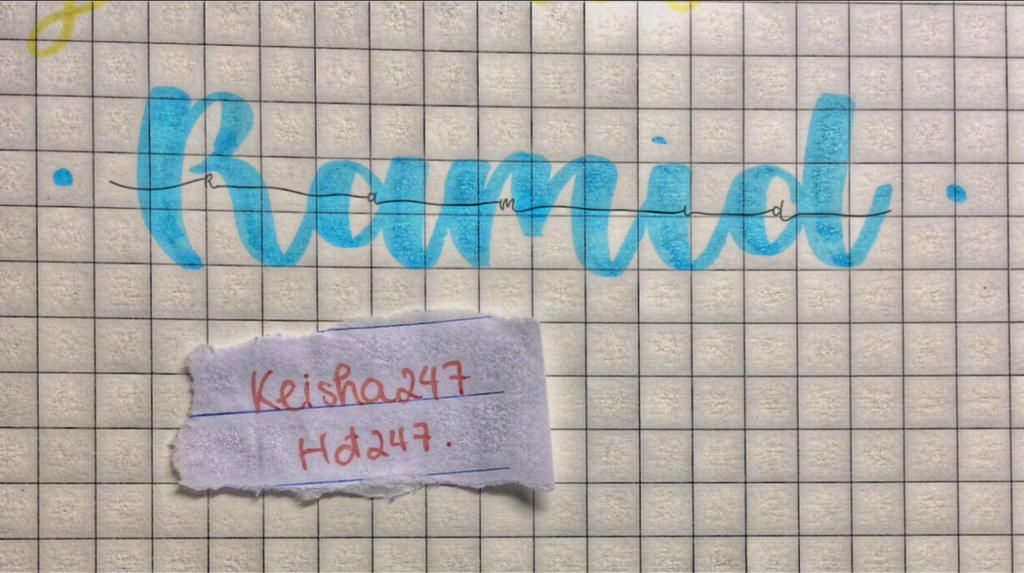 Ramid
Ramid
Keisha247
Hd247.